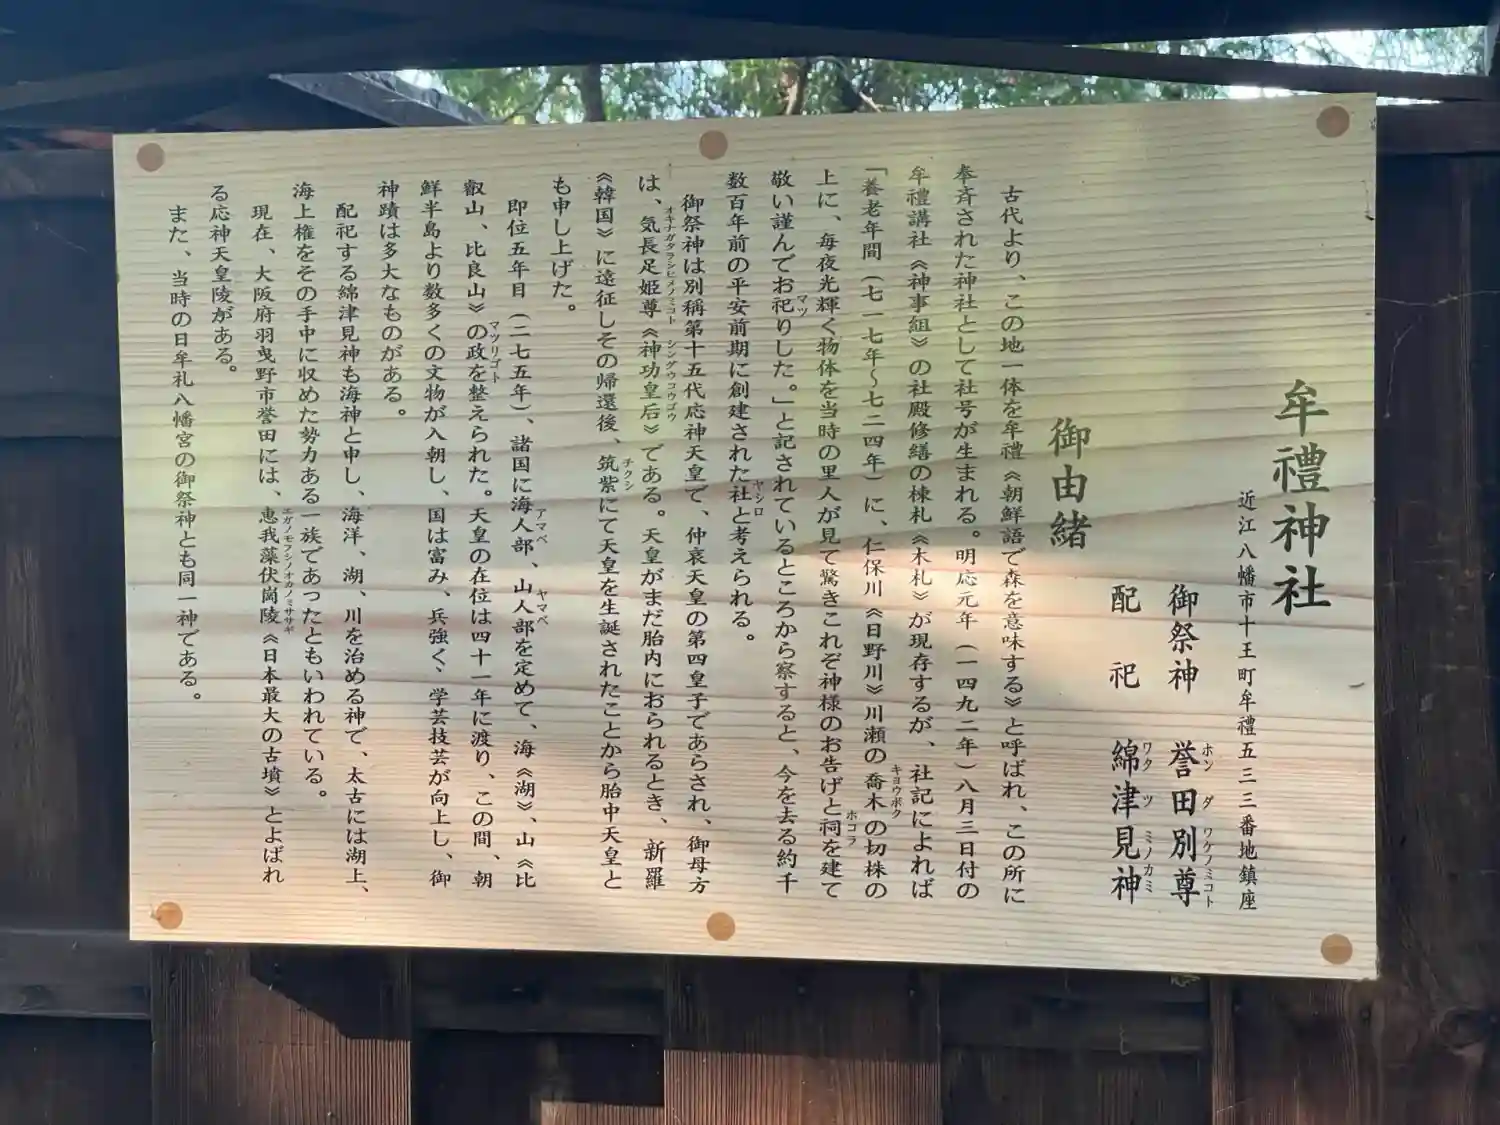 牟禮神社
近江八幡市十王町牟禮五三三番地鎮座
御祭神 誉田別尊
ホンダワケノミコト
配祀 綿津見神
ワタツミノカミ
御由緒
古代より、この地一体を牟禮《朝鮮語で森を意味する》と呼ばれ、この所に
奉斉された神社として社号が生まれる。明応元年(一四九二年)八月三日付の
牟禮講社《神事組》の社殿修繕の棟札《木札》が現存するが、社記によれば
「養老年間(七一七年~七二四年)に、仁保川《日野川》川瀬の喬木の切株の
キヨウボク
上に、毎夜光輝く物体を当時の里人が見て驚きこれぞ神様のお告げと祠を建て
ホコラ
敬い謹んでお祀りした。」と記されているところから察すると、今を去る約千
マツ
数百年前の平安前期に創建された社と考えられる。
ヤシロ
御祭神は別稱第十五代応神天皇で、仲哀天皇の第四皇子であらされ、御母方
は、気長足姫尊《神功皇后》である。天皇がまだ胎内におられるとき、新羅
オキナガタラシヒメノミコト シングウコウゴウ
《韓国》に遠征しその帰還後、筑紫にて天皇を生誕されたことから胎中天皇と
チクシ
も申し上げた。
即位五年目(二七五年)、諸国に海人部、山人部を定めて、海《湖》、山《比
アマベ ヤマベ
叡山、比良山》の政を整えられた。天皇の在位は四十一年に渡り、この間、朝
マツリゴト
鮮半島より数多くの文物が入朝し、国は富み、兵強く、学芸技芸が向上し、御
神蹟は多大なものがある。
配祀する綿津見神も海神と申し、海洋、湖、川を治める神で、太古には湖上、
海上権をその手中に収めた勢力ある一族であったともいわれている。
現在、大阪府羽曳野市誉田には、恵我藻伏崗陵《日本最大の古墳》とよばれ
エガノモフシノオカノミササギ
る応神天皇陵がある。
また、当時の日牟礼八幡宮の御祭神とも同一神である。